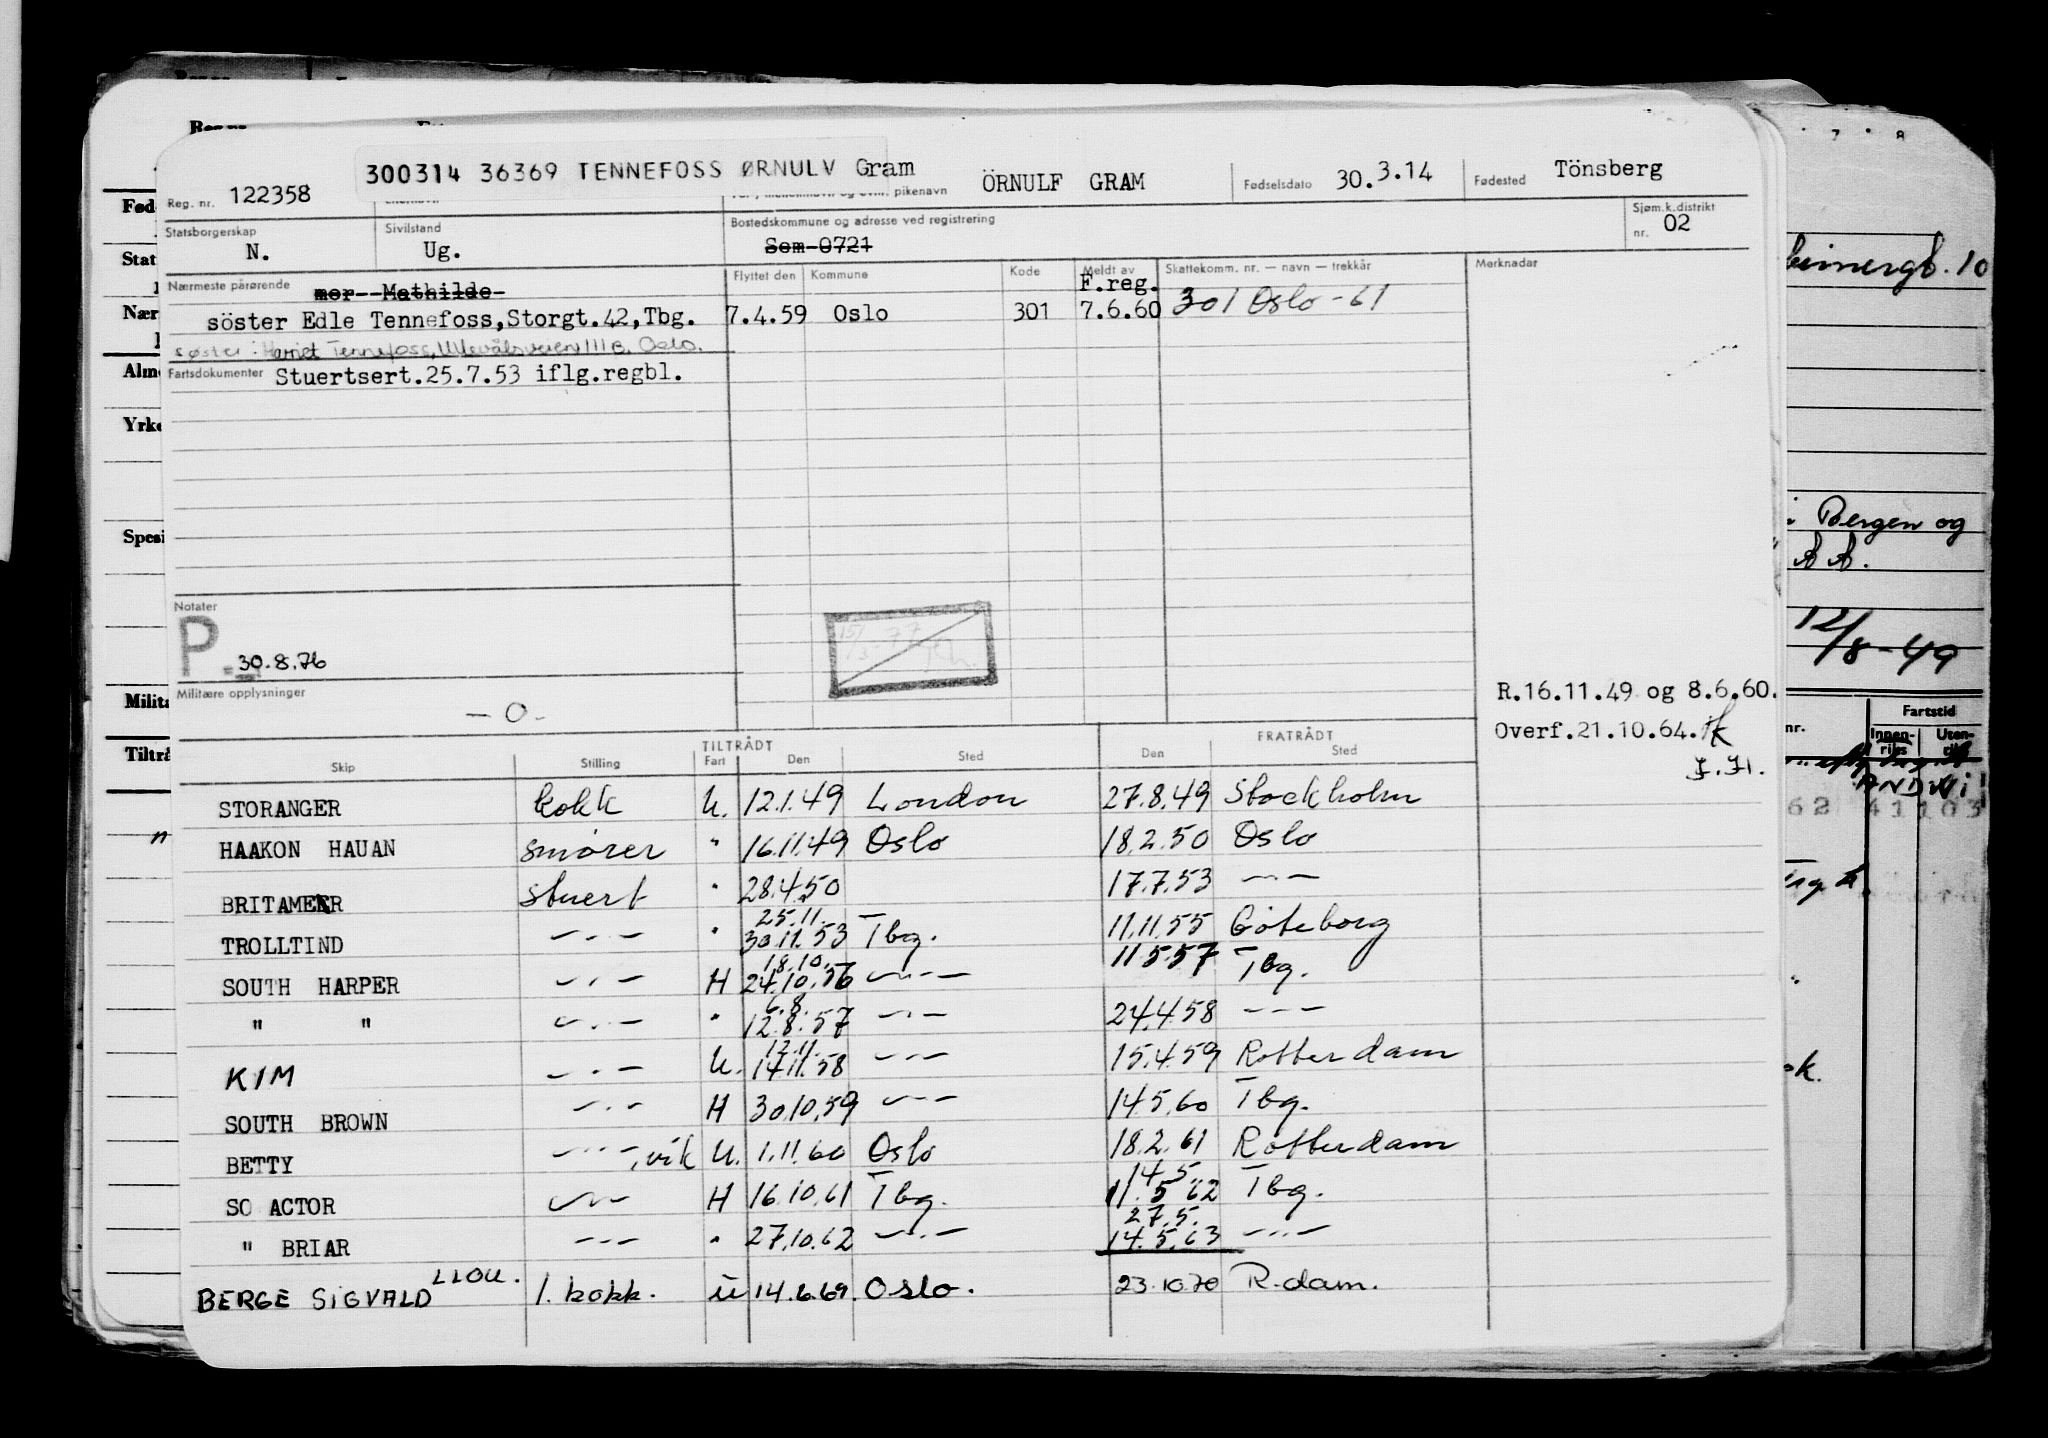 300314 36369 TENNEFOSS ØRNULV Gram
Reg. nr. 122358
pikenavn ÖRNULF GRAM
Fødselsdato 30.3.14
Fødested Tönsberg
Statsborgerskap N.
Sivilstand Ug.
Bostedskommune og adresse ved registrering
Sem 0721
Sjøm.k.distrikt
nr. 02
Nærmeste pårørende mor Mathilde
söster Edle Tennefoss,Storgt.42,Tbg.
søster: Harriet Tennefoss, Ullevålsveien 111 B. Oslo.
Flyttet den Kommune Kode Meldt av Skattekomm. nr. — navn — trekkår Merknader
F.reg.
7.4.59 Oslo 301 7.6.60 301 Oslo - 61
Fartsdokumenter Stuertsert.25.7.53 iflg.regbl.
Notater
P. 30.8.76
Militære opplysninger
- 0 -
R.16.11.49 og 8.6.60.
Overf.21.10.64.
TILTRÅDT FRATRÅDT
Skip Stilling Fart Den Sted Den Sted
STORANGER kokk U. 12.1.49 London 27.8.49 Stockholm
HAAKON HAUAN smører " 16.11.49 Oslo 18.2.50 Oslo
BRITAMER stuert " 28.4.50 17.7.53 —"—
25.11.
TROLLTIND —"— " 30.11.53 Tbg. 11.11.55 Göteborg
18.10.
SOUTH HARPER —"— H 24.10.56 —"— 11.5.57 Tbg.
6.8.
" " —"— " 12.8.57 —"— 24.4.58 —"—
12.11.
KIM —"— U. 14.11.58 —"— 15.4.59 Rotterdam
SOUTH BROWN —"— H 30.10.59 —"— 14.5.60 Tbg.
BETTY —"—, vik U. 1.11.60 Oslo 18.2.61 Rotterdam
14.5.
SO ACTOR —"— H 16.10.61 Tbg. 11.5.62 Tbg.
27.5.
" BRIAR —"— " 27.10.62 —"— 14.5.63 —"—
BERGE SIGVALD LLOU. 1. kokk. u 14.6.69. Oslo. 23.10.70 R.dam.
Stat
Alm
Yrke
Spesi
Milit
Tiltrå
10
i Bergen og
12/8-49
nr.
Fartstid
Innen-
riks
Uten-